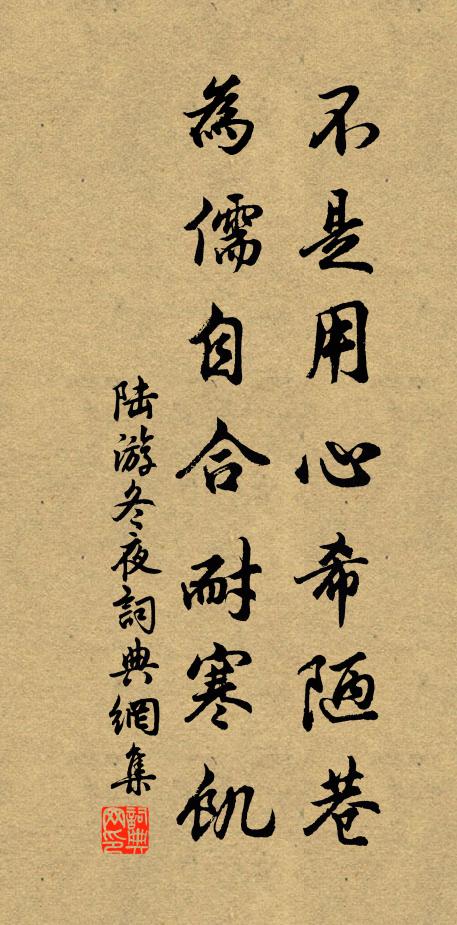 不是用心希陋巷
為儒自合耐寒飢
陆游冬夜詞典網集
詞典网印